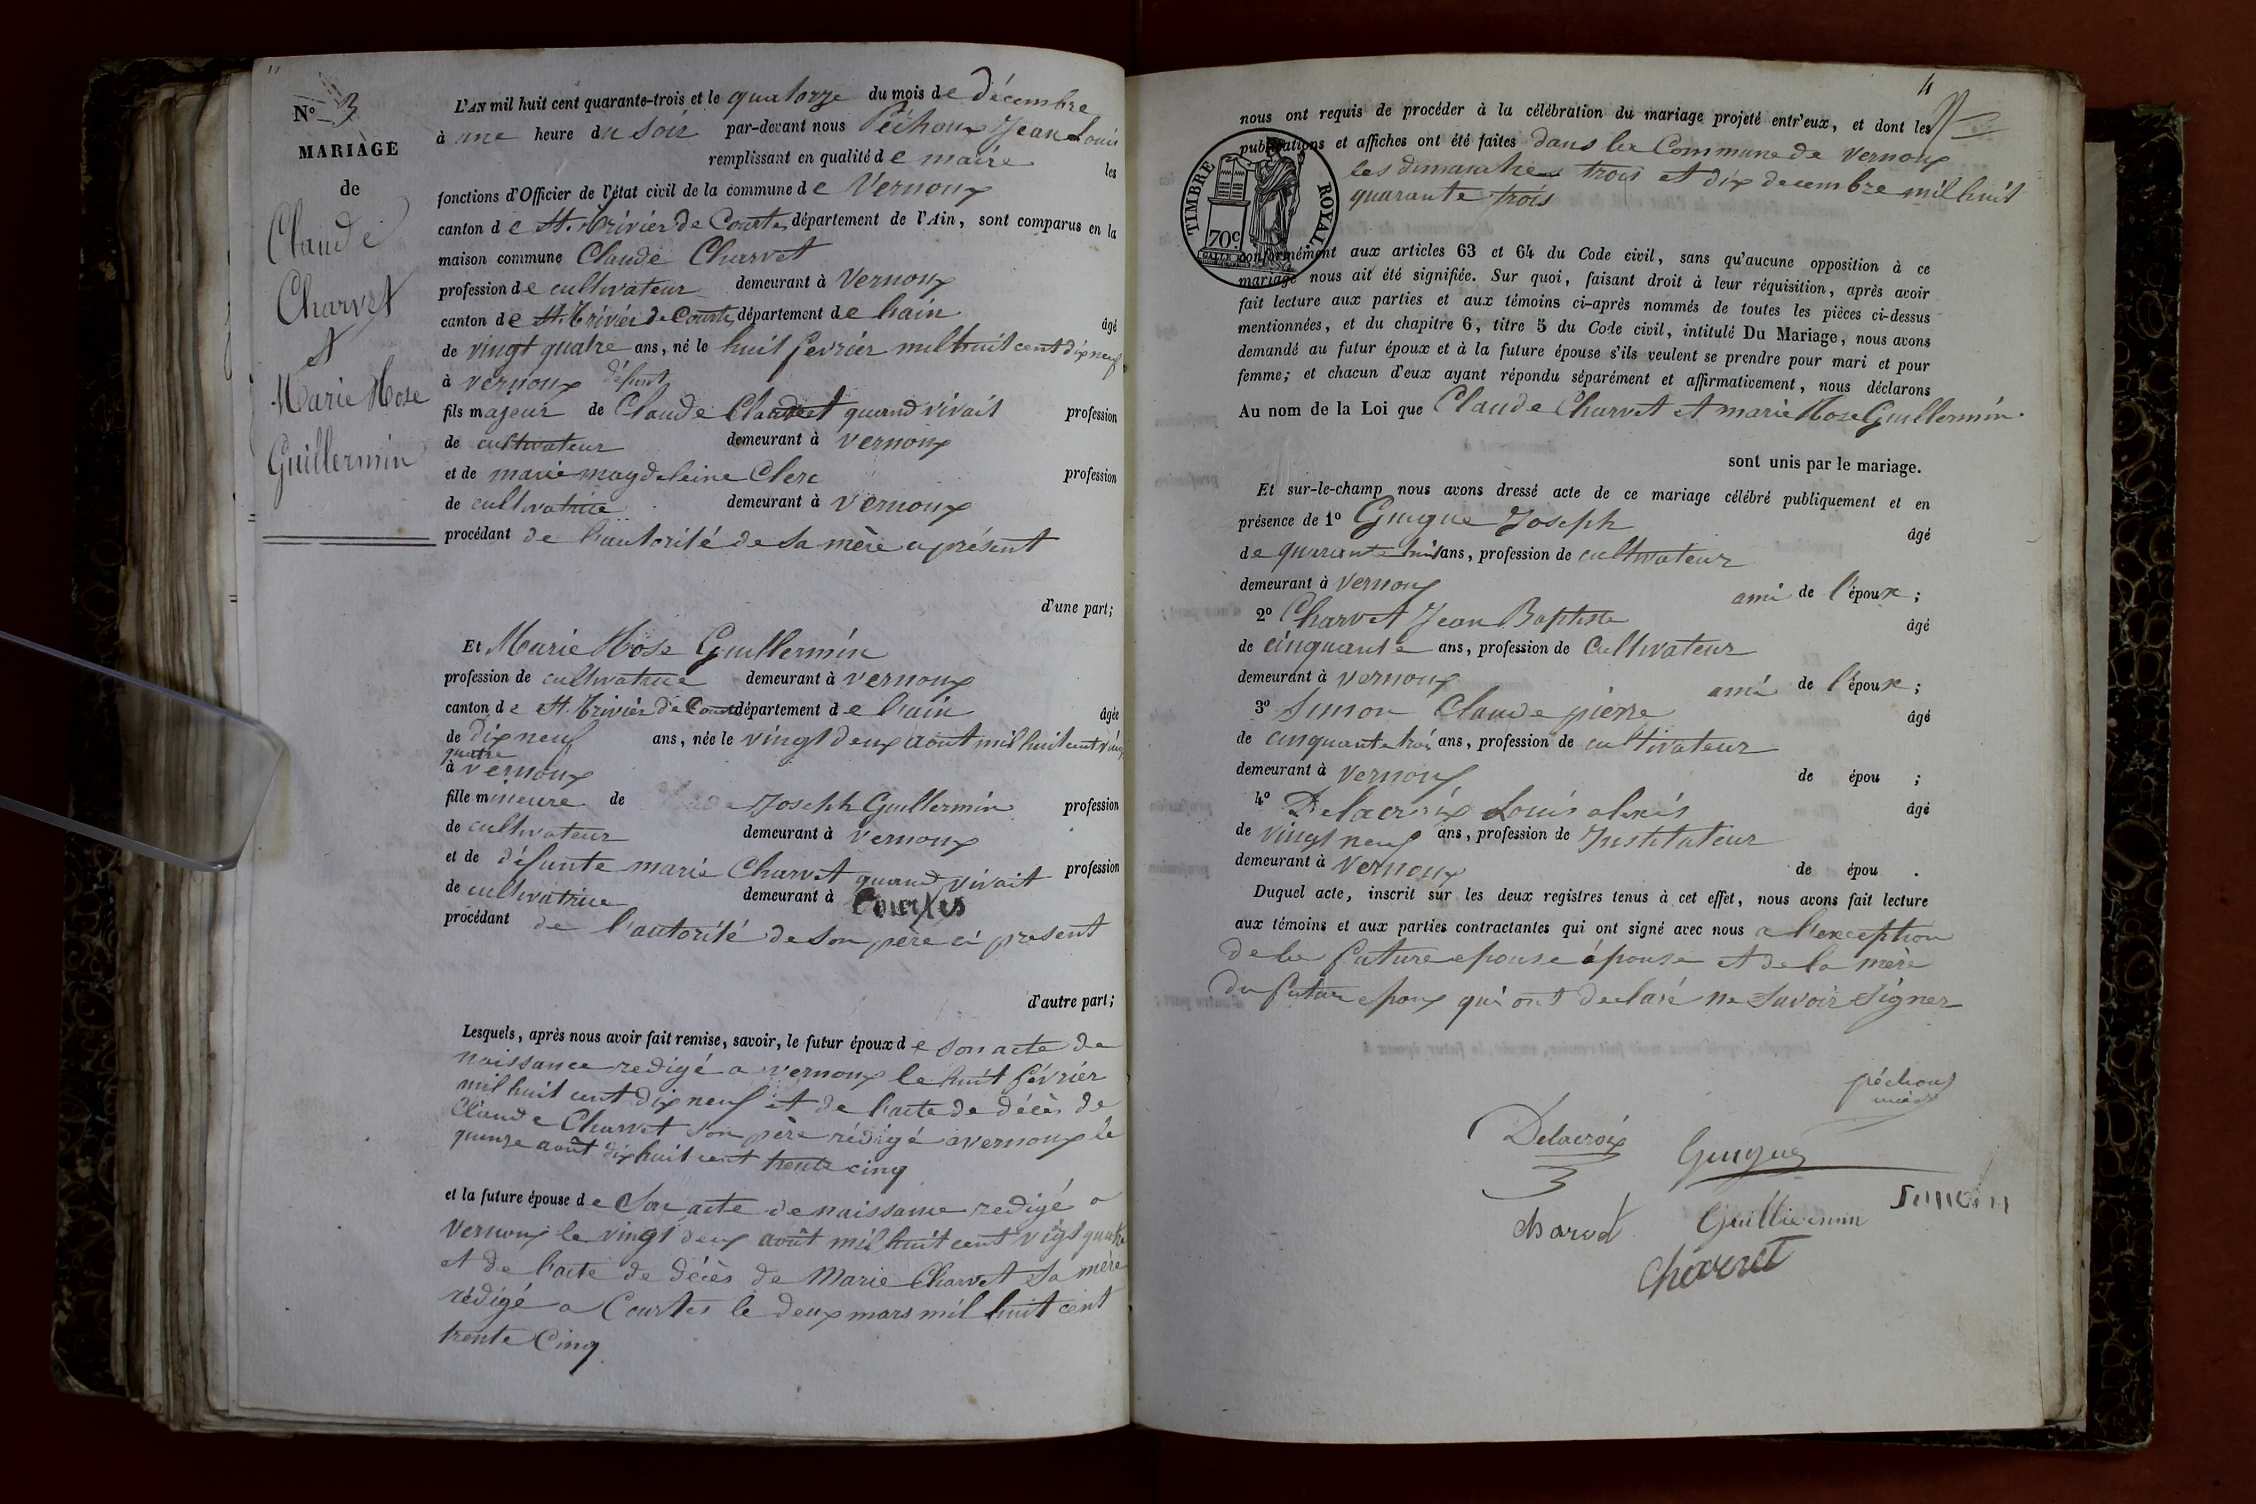 N° 3
MARIAGE
de
Claude
Charvet
et
Marie Rose
Guillermin
L'AN mil huit cent quarante-trois et le quatorze du mois de décembre
à une heure du soir par-devant nous Péchoux Jean Louis
remplissant en qualité de maire les
fonctions d'Officier de l'état civil de la commune de Vernoux
canton de St. Trivier de Courtes département de l'Ain, sont comparus en la
maison commune Claude Charvet
profession de cultivateur demeurant à Vernoux
canton de St. Trivier de Courtes département de l'ain âgé
de vingt quatre ans, né le huit fevrier mil huit cent dix neuf
à vernoux défunt
fils majeur de Claude Charvet quand vivait profession
de cultivateur demeurant à vernoux
et de marie magdeleine Clerc profession
de cultivatrice demeurant à vernoux
procédant de l'autorité de sa mère a présent
d'une part;
Et Marie Rose Guillermin
profession de cultivatrice demeurant à vernoux
canton de St. Trivier de Courtes département de l'ain âgée
de dix neuf ans, née le vingt deux aout mil huit cent vingt
quatre
à vernoux
fille mineure de Joseph Guillermin profession
de cultivateur demeurant à vernoux
et de défunte marie Charvet quand vivait profession
de cultivatrice demeurant à Courtes
procédant de l'autorité de son père ci present
d'autre part;
Lesquels, après nous avoir fait remise, savoir, le futur époux de son acte de
naissance redigé a vernoux le huit février
mil huit cent dix neuf et de l'acte de décès de
Claude Charvet son père rédigé a vernoux le
quinze août dix huit cent trente cinq
et la future épouse de Son acte de naissance redigé a
vernoux le vingt deux août mil huit cent vigt quatre
et de l'acte de décès de Marie Charvet sa mère
rédigé a Courtes le deux mars mil huit cent
trente Cinq
4
nous ont requis de procéder à la célébration du mariage projeté entr'eux, et dont les
publications et affiches ont été faites dans la Commune de vernoux
les dimanches trois et dix decembre mil huit
quarante trois
TIMBRE ROYAL
70c
conformément aux articles 63 et 64 du Code civil, sans qu'aucune opposition à ce
mariage nous ait été signifiée. Sur quoi, faisant droit à leur réquisition, après avoir
fait lecture aux parties et aux témoins ci-après nommés de toutes les pièces ci-dessus
mentionnées, et du chapitre 6, titre 5 du Code civil, intitulé Du Mariage, nous avons
demandé au futur époux et à la future épouse s'ils veulent se prendre pour mari et pour
femme; et chacun d'eux ayant répondu séparément et affirmativement, nous déclarons
Au nom de la Loi que Claude Charvet et marie Rose Guillermin.
sont unis par le mariage.
Et sur-le-champ nous avons dressé acte de ce mariage célébré publiquement et en
présence de 1° Guigue Joseph âgé
de quarante huit ans, profession de cultivateur
demeurant à vernoux ami de l'époux;
2° Charvet Jean Baptiste âgé
de cinquante ans, profession de Cultivateur
demeurant à vernoux ami de l'époux;
3° Simon Claude pierre âgé
de cinquante trois ans, profession de cultivateur
demeurant à vernoux de épou ;
4° Delacroix Louis alexis âgé
de vingt neuf ans, profession de Instituteur
demeurant à vernoux de épou .
Duquel acte, inscrit sur les deux registres tenus à cet effet, nous avons fait lecture
aux témoins et aux parties contractantes qui ont signé avec nous a l'exception
de la future epouse épouse et de la mère
du futur epoux qui ont declaré ne savoir signer
péchoux
maire
Delacroix
Guigue
Simon
charvet
Guilliermin
Charvet